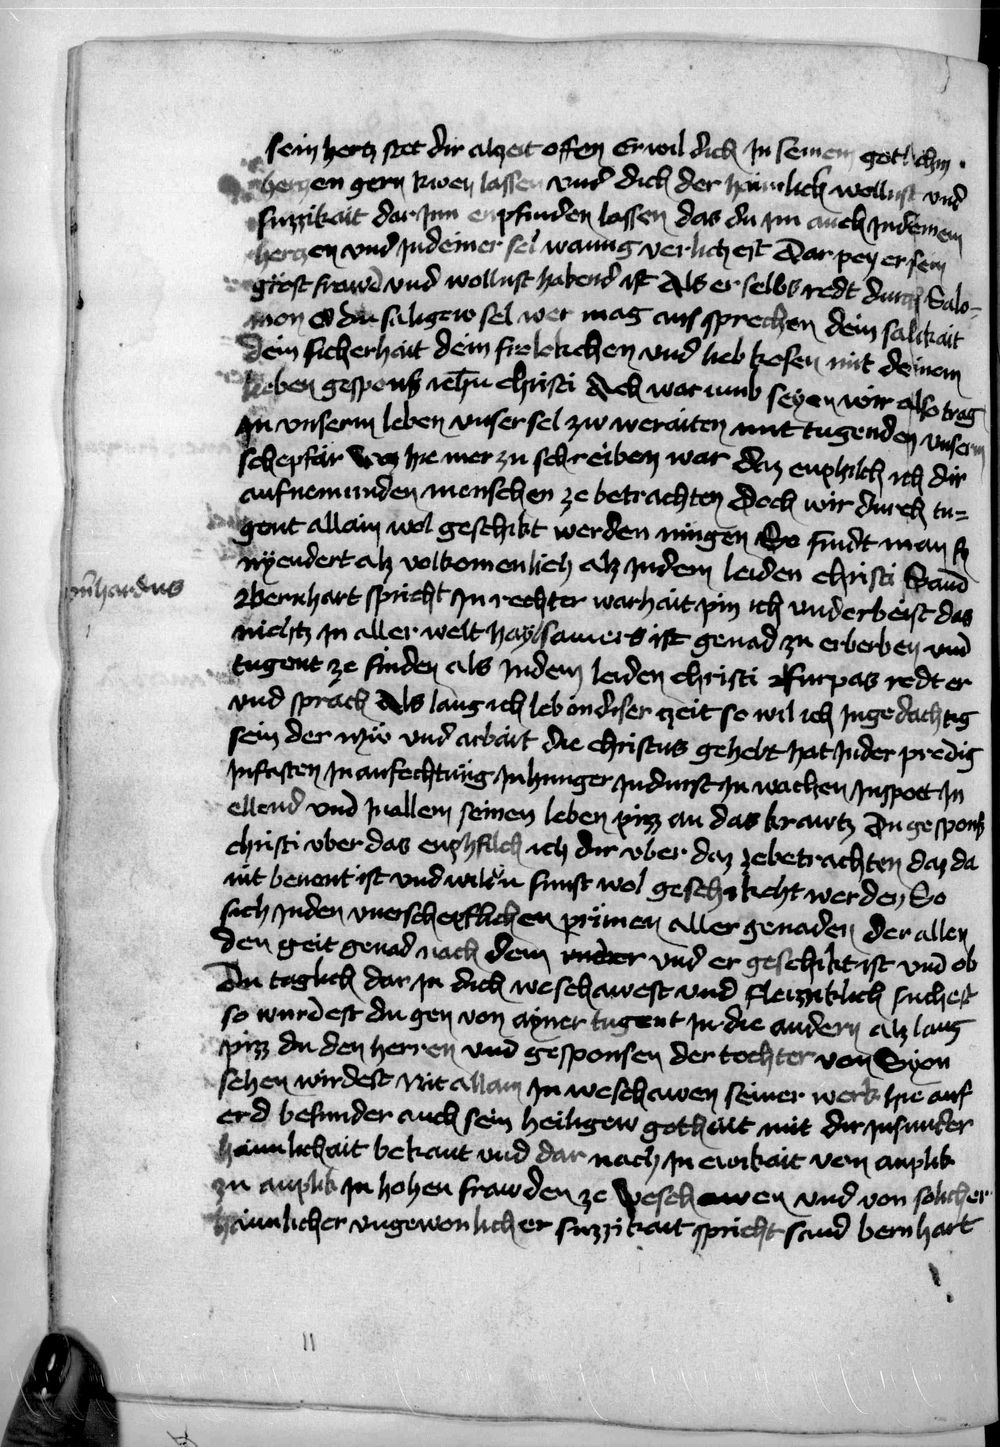 sein hertz stet dir alzeit offen Er wil dich In seinem gotlichm
hertzen gern rwen lassen vnd dich der haimlich wollust vnd
suzzikait dar Jnn enpfinden lassen das du im auch Jndeinem
hertzen vnd Jndeiner sel wanug verlichest Dar pey er sein
gröst frawd vnd wollust habend ist Als er selbs redt durch Salo-
mon O du saligew sel wer mag aus sprechen dein salikait
dein sicherhait dein frolokchen vnd liebkosen mit deinem
lieben gesponß ihesu christi Ach warumb seyen wir also trag
Jn vnserm leben vnser sel zw weraiten mit tugenden vnserm
schepfär Waz hie mer zu schreiben war daz enphilch ich dir
aufnemunden menschen ze betrachten Doch wir durch tu-
gent allain wol geschikt werden mugen So findt man sy
nyendert alz volkomenlich alz Jndem leiden christi Sand
Bernhart spricht Jn rechter warhait pin ich vnderbeist das
nichtz Jn aller welt haylsamers ist genad zu erberben vnd
tugent ze finden als Jndem leiden christi Furpas redt er
vnd sprach Als lang ich leb in diser zeit so wil ich Jngedachtig
sein der mw vnd arbait die christus gehebt hat Jnder predig
Jnfasten Jn anfechtung Jnhunger Jndurst Jn wachen Jnspot Jn
ellend vnd Jnallem seinen leben pizz an das krawtz Du gesponß
christi vber das enphilch ich dir vber daz zebetrachten daz da
nit benent ist vnd wildu sunst wol geschikcht werden So
sich Jnden vnerschepflichen prünen aller genaden der allen
den geit genad nach dem vnd er geschikt ist vnd ob
Du taglich dar Jn dich weschawest vnd fleizziklich suchest
so wurdest du gen von ayner tugent Jn die andern alz lang
pizz du den herren vnd gesponsen der tochter von Syon
sehen wirdest Nit allain Jn weschawen seiner werk hie auf
erd besunder auch sein heiligew gothait mit dir Jnsunder
haimlichait bekant vnd dar nach Jn ewikait von anplik
zu anplik Jn hohen frawden ze weschawen vnd von solicher
haimlicher vngewonlicher suzzikait spricht sand bernhart